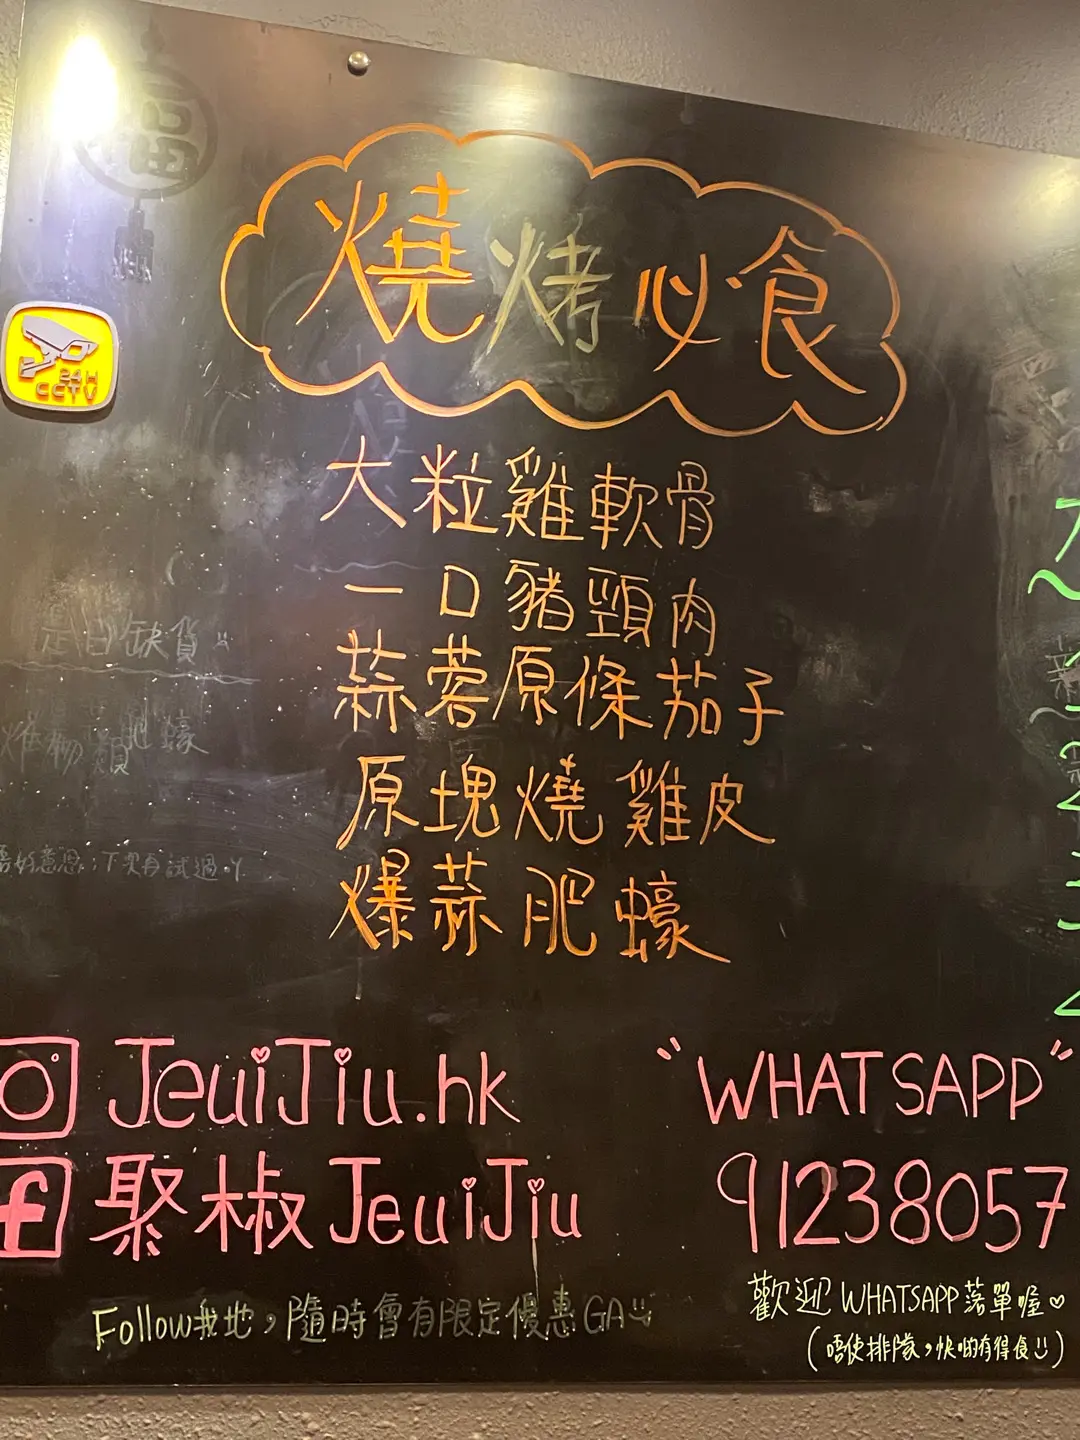 燒烤必食
24H
CCTV
大粒雞軟骨
一口豬頸肉
蒜蓉原條茄子
原塊燒雞皮
爆蒜肥蠔
缺貨
肥蠔
下次再試過
JeuiJiu.hk
聚椒JeuiJiu
"WHATSAPP"
91238057
Follow我地，隨時會有限定優惠GA
歡迎WHATSAPP落單喔♡
(唔使排隊，快啲有得食)